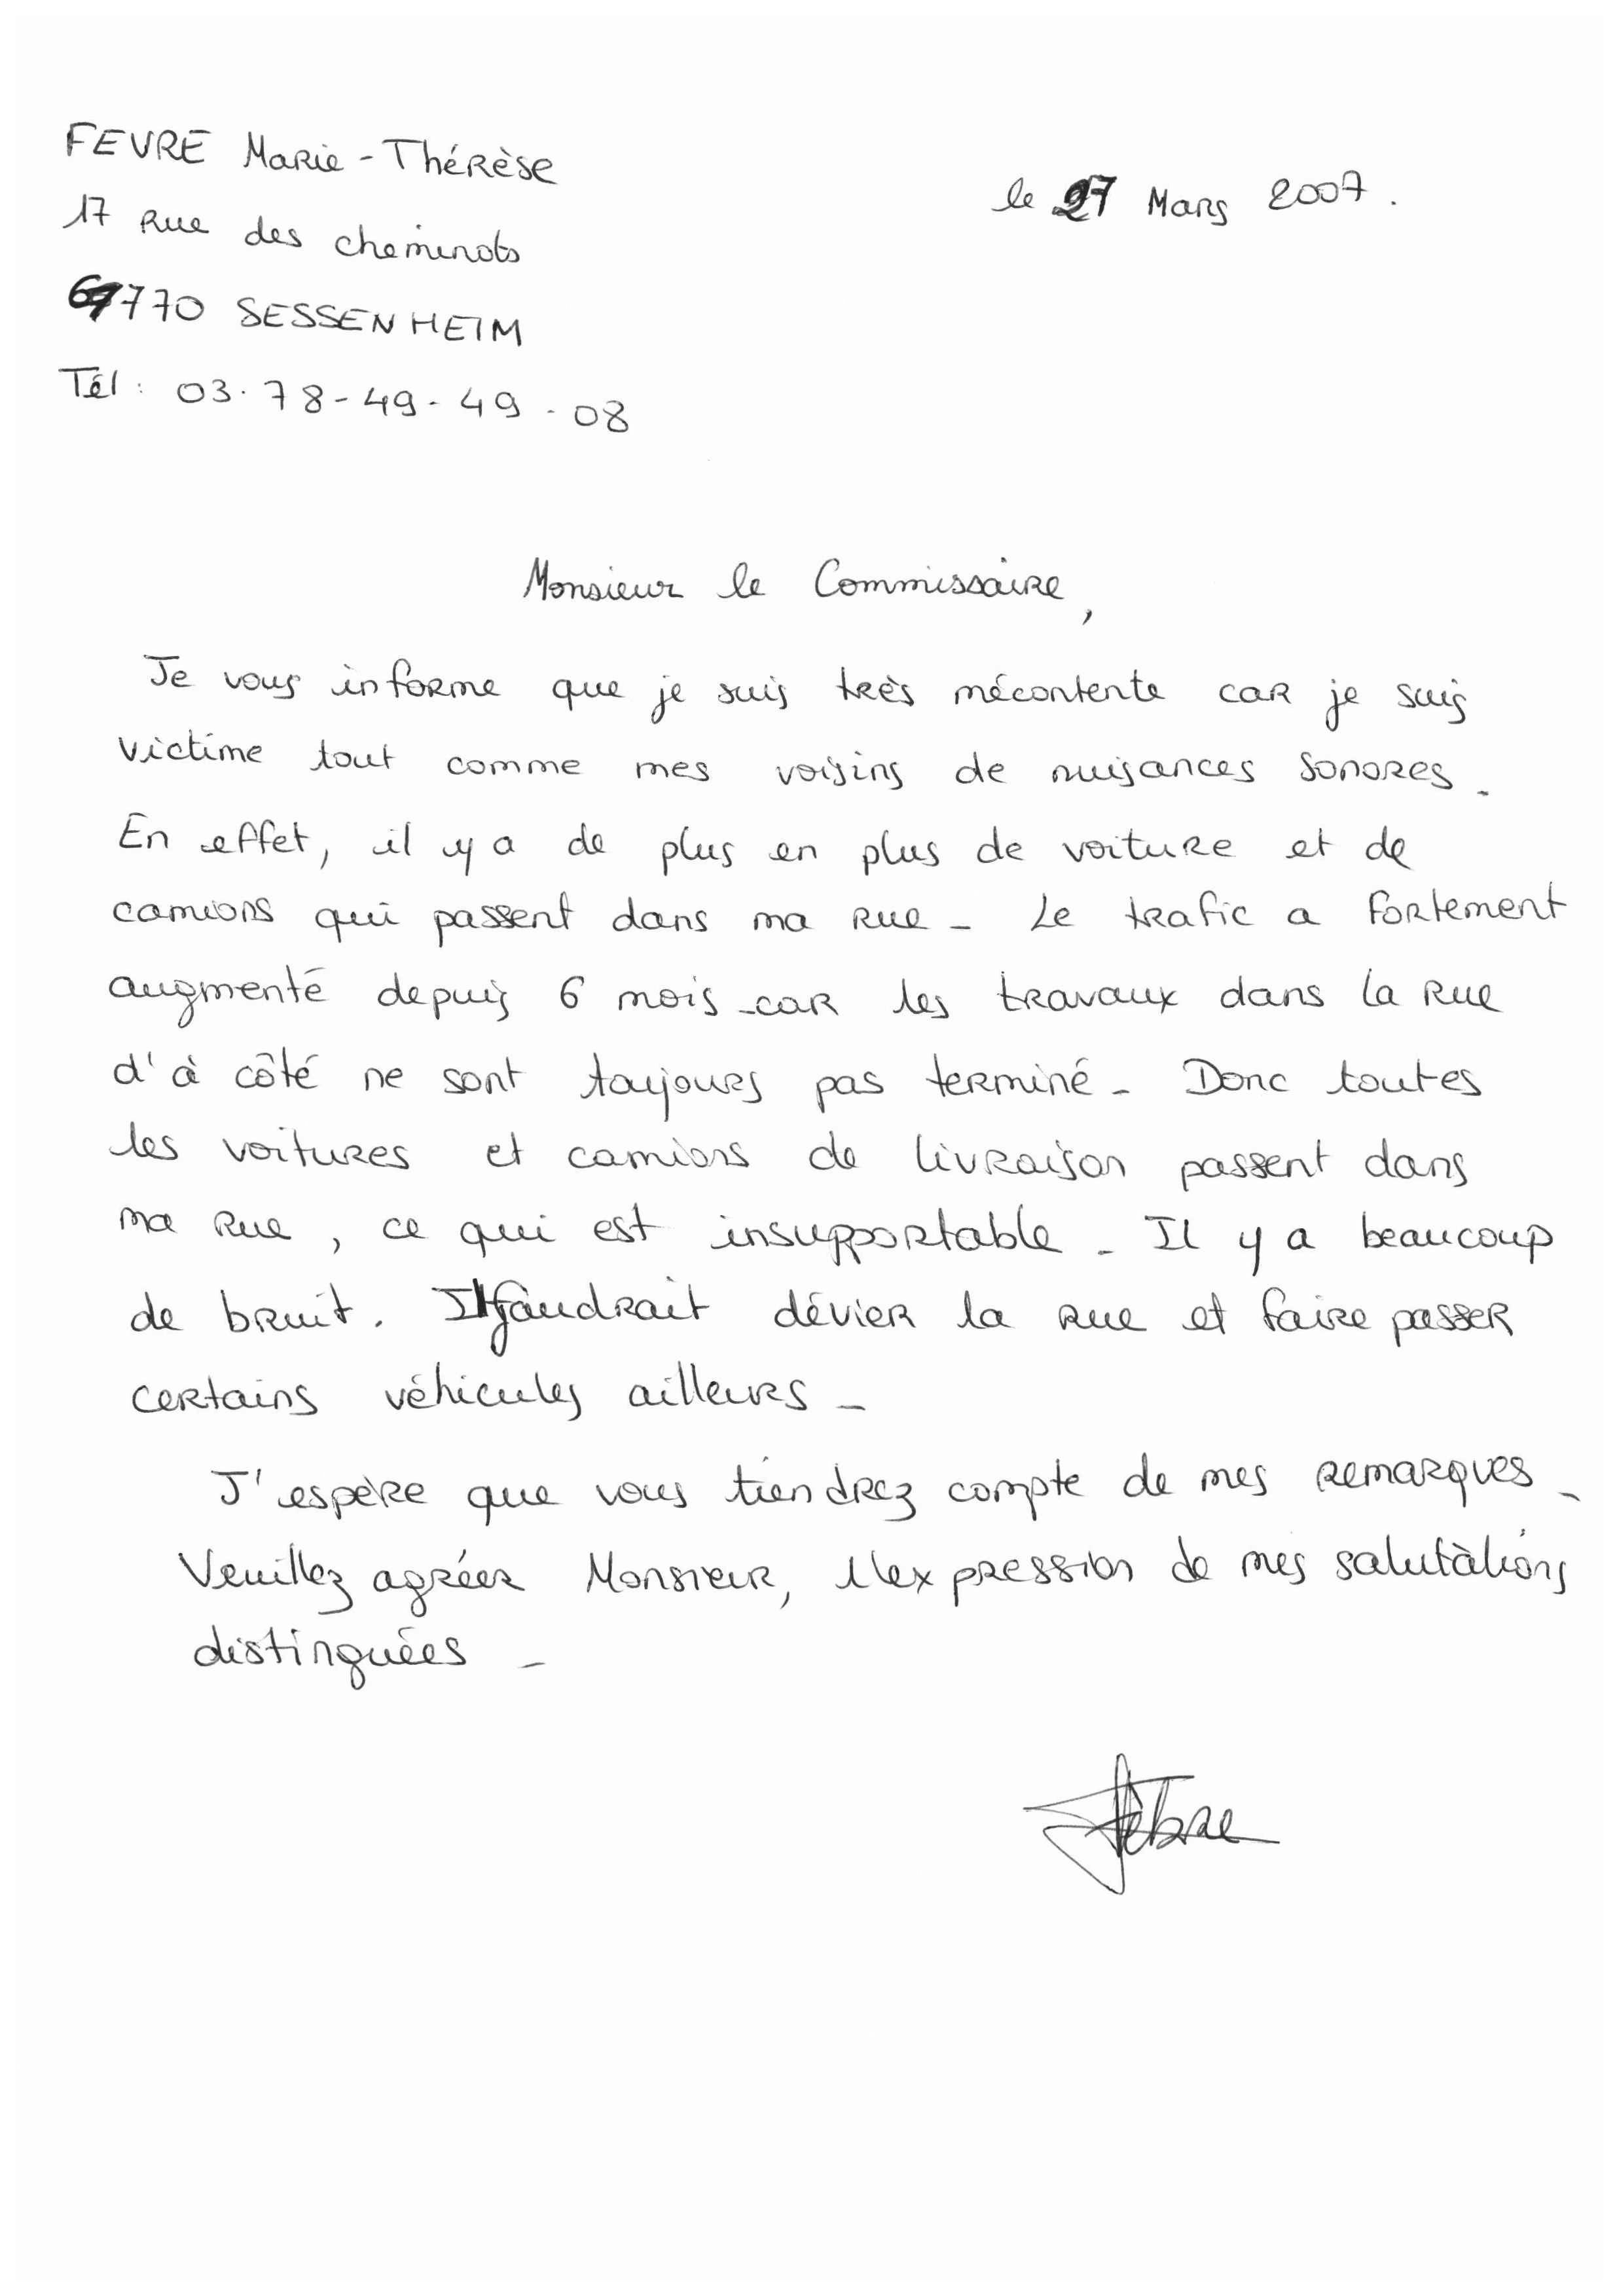 FEVRE Marie-Thérèse
le 27 Mars 2007.
17 Rue des cheminots
67770 SESSENHEIM
Tél : 03.78-49-49-08
Monsieur le Commissaire,
Je vous informe que je suis très mécontente car je suis
victime tout comme mes voisins de nuisances sonores.
En effet, il y a de plus en plus de voiture et de
camions qui passent dans ma rue. Le trafic a fortement
augmenté depuis 6 mois car les travaux dans la rue
d'à côté ne sont toujours pas terminé. Donc toutes
les voitures et camions de livraison passent dans
ma rue, ce qui est insupportable. Il y a beaucoup
de bruit. Il faudrait dévier la rue et faire passer
certains véhicules ailleurs.
J'espère que vous tiendrez compte de mes remarques.
Veuillez agréer Monsieur, l'expression de mes salutations
distinguées.